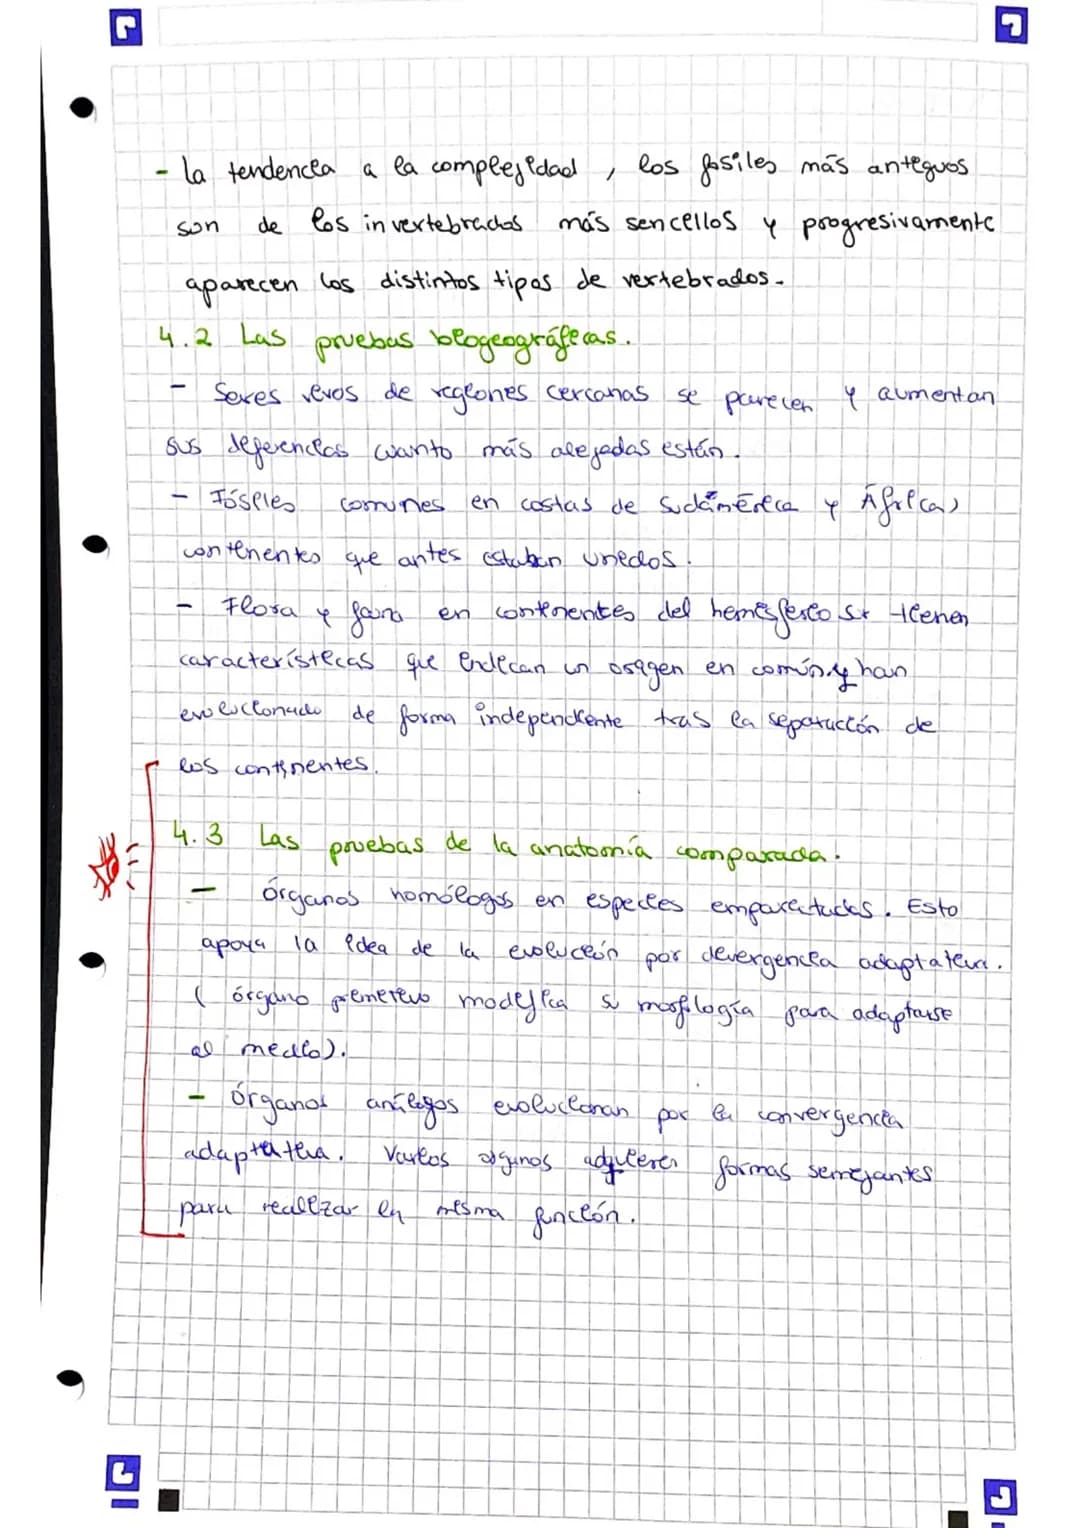 - La tendencia a la complejidad, los fosiles más antiguos
son de los invertebrados más sencillos y progresivamente
aparecen los distintos tipos de vertebrados.
4.2 Las pruebas biogeográficas.
- Seres vivos de regiones cercanas se parecen y aumentan
sus diferencias cuanto más alejadas están.
- Fósiles comunes en costas de Sudámérica y África,
continentes que antes estaban unidos.
- Flora y fauna en continentes del hemisferio sur tienen
características que indican un origen en común y han
evolucionado de forma independiente tras la separación de
los continentes.
4.3 Las pruebas de la anatomía comparada.
- Órganos homólogos en especies emparentadas. Esto
apoya la idea de la evolución por divergencia adaptativa.
( órgano primitivo modifica su morfología para adaptarse
al medio).
- Órganos análogos evolucionan por la convergencia
adaptativa. Varios órganos adquieren formas semejantes
para realizar la misma función.